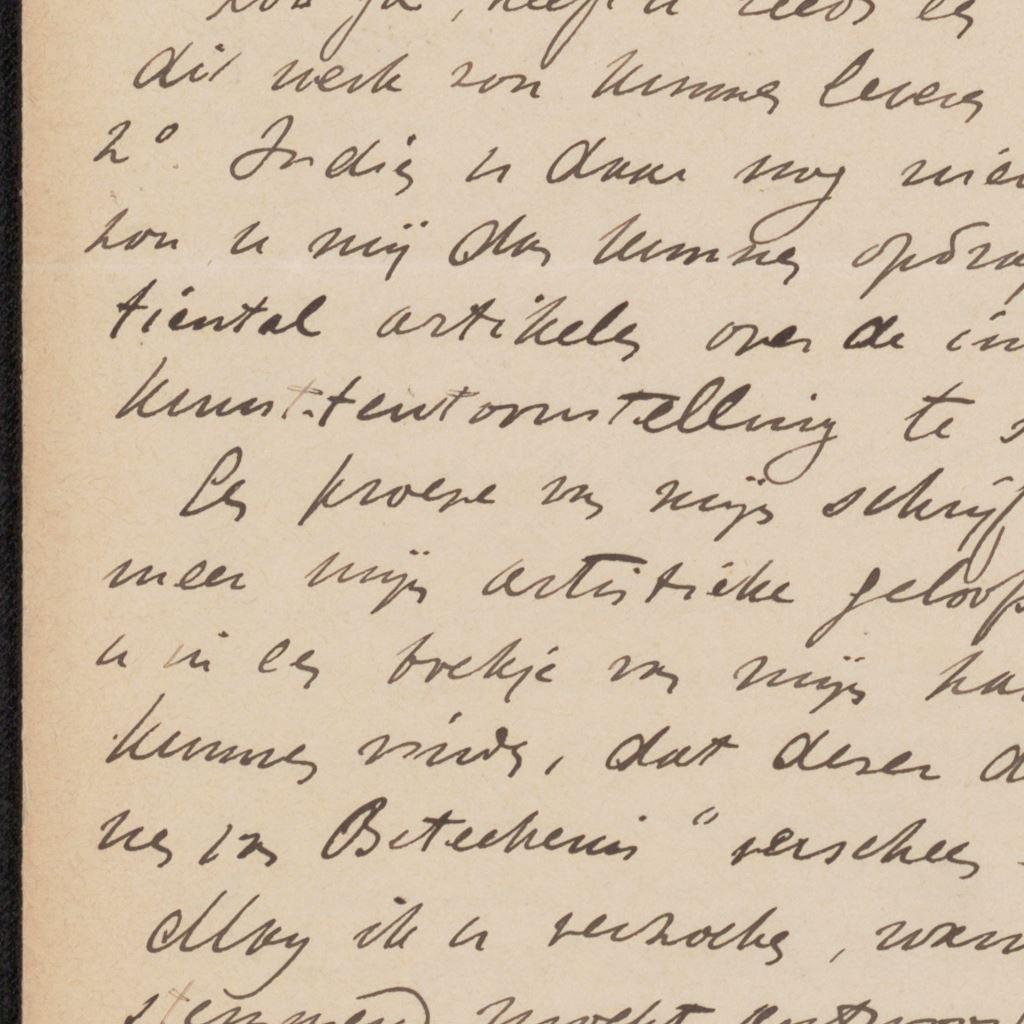 zoo ja, heeft u reeds een
dit werk zou kunnen leveren
2° Indien u daar nog niet
zou u mij dan kunnen opdra
tiental artikelen over de in
kunst-tentoonstelling te s
Een proeve van mijn schrijf
meer mijn artistieke geloofs
u in een boekje van mijn ha
kunnen vinden, dat dezer d
nen van Beteekenis" verscheen
Mag ik u verzoeken, wan
mocht antwoo